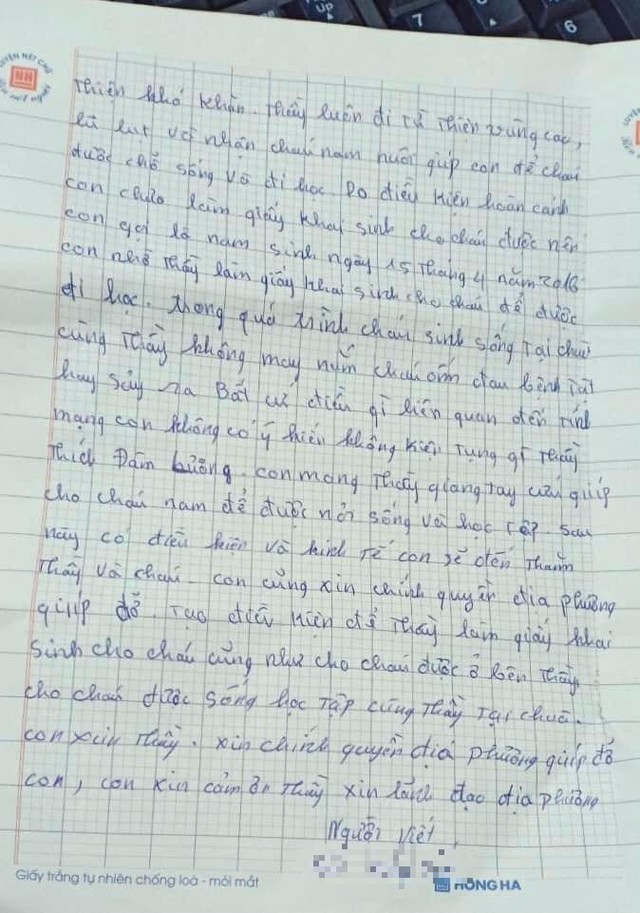 UP
7
6
thiện khó khăn. Thầy luôn đi từ thiện vùng cao,
lũ lụt và nhận cháu nam nuôi giúp con để cháu
được chỗ sống và đi học. Do điều kiện hoàn cảnh
con chưa làm giấy khai sinh cho cháu được nên
con gọi là nam sinh ngày 15 tháng 4 năm 2016
con nhờ thầy làm giấy khai sinh cho cháu để được
đi học. trong quá trình cháu sinh sống tại chùa
cùng thầy không may nếu cháu ốm đau bệnh tật
hay sảy ra Bất cứ điều gì liên quan đến tính
mạng con không có ý kiến không kiện tụng gì thầy
thích Đàm . con mong thầy giang tay cứu giúp
cho cháu nam để được nơi sống và học tập. sau
này có điều kiện và kinh tế con sẽ đến thăm
thầy và cháu. con cũng xin chính quyền địa phương
giúp đỡ. tạo điều kiện để thầy làm giấy khai
sinh cho cháu cũng như cho cháu được ở bên thầy
cho cháu được sống học tập cùng thầy tại chùa.
con xin thầy. xin chính quyền địa phương giúp đỡ
con, con xin cảm ơn thầy xin lãnh đạo địa phương
Người viết
Giấy trắng tự nhiên chống loá - mỏi mắt
HỒNG HÀ